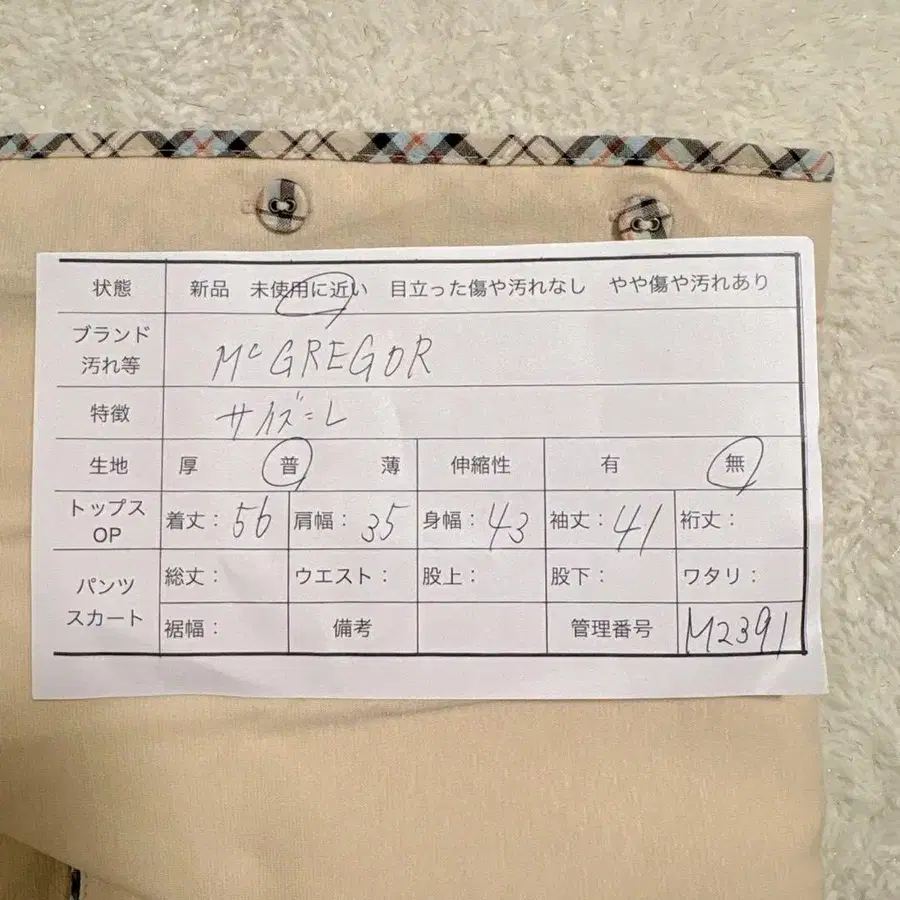 状態 新品 未使用に近い 目立った傷や汚れなし やや傷や汚れあり
ブランド
汚れ等 McGREGOR
特徴 サイズ=L
生地 厚 普 薄 伸縮性 有 無
トップス
OP 着丈: 56 肩幅: 35 身幅: 43 袖丈: 41 裄丈:
パンツ
スカート 総丈: ウエスト: 股上: 股下: ワタリ:
裾幅: 備考 管理番号 M2391